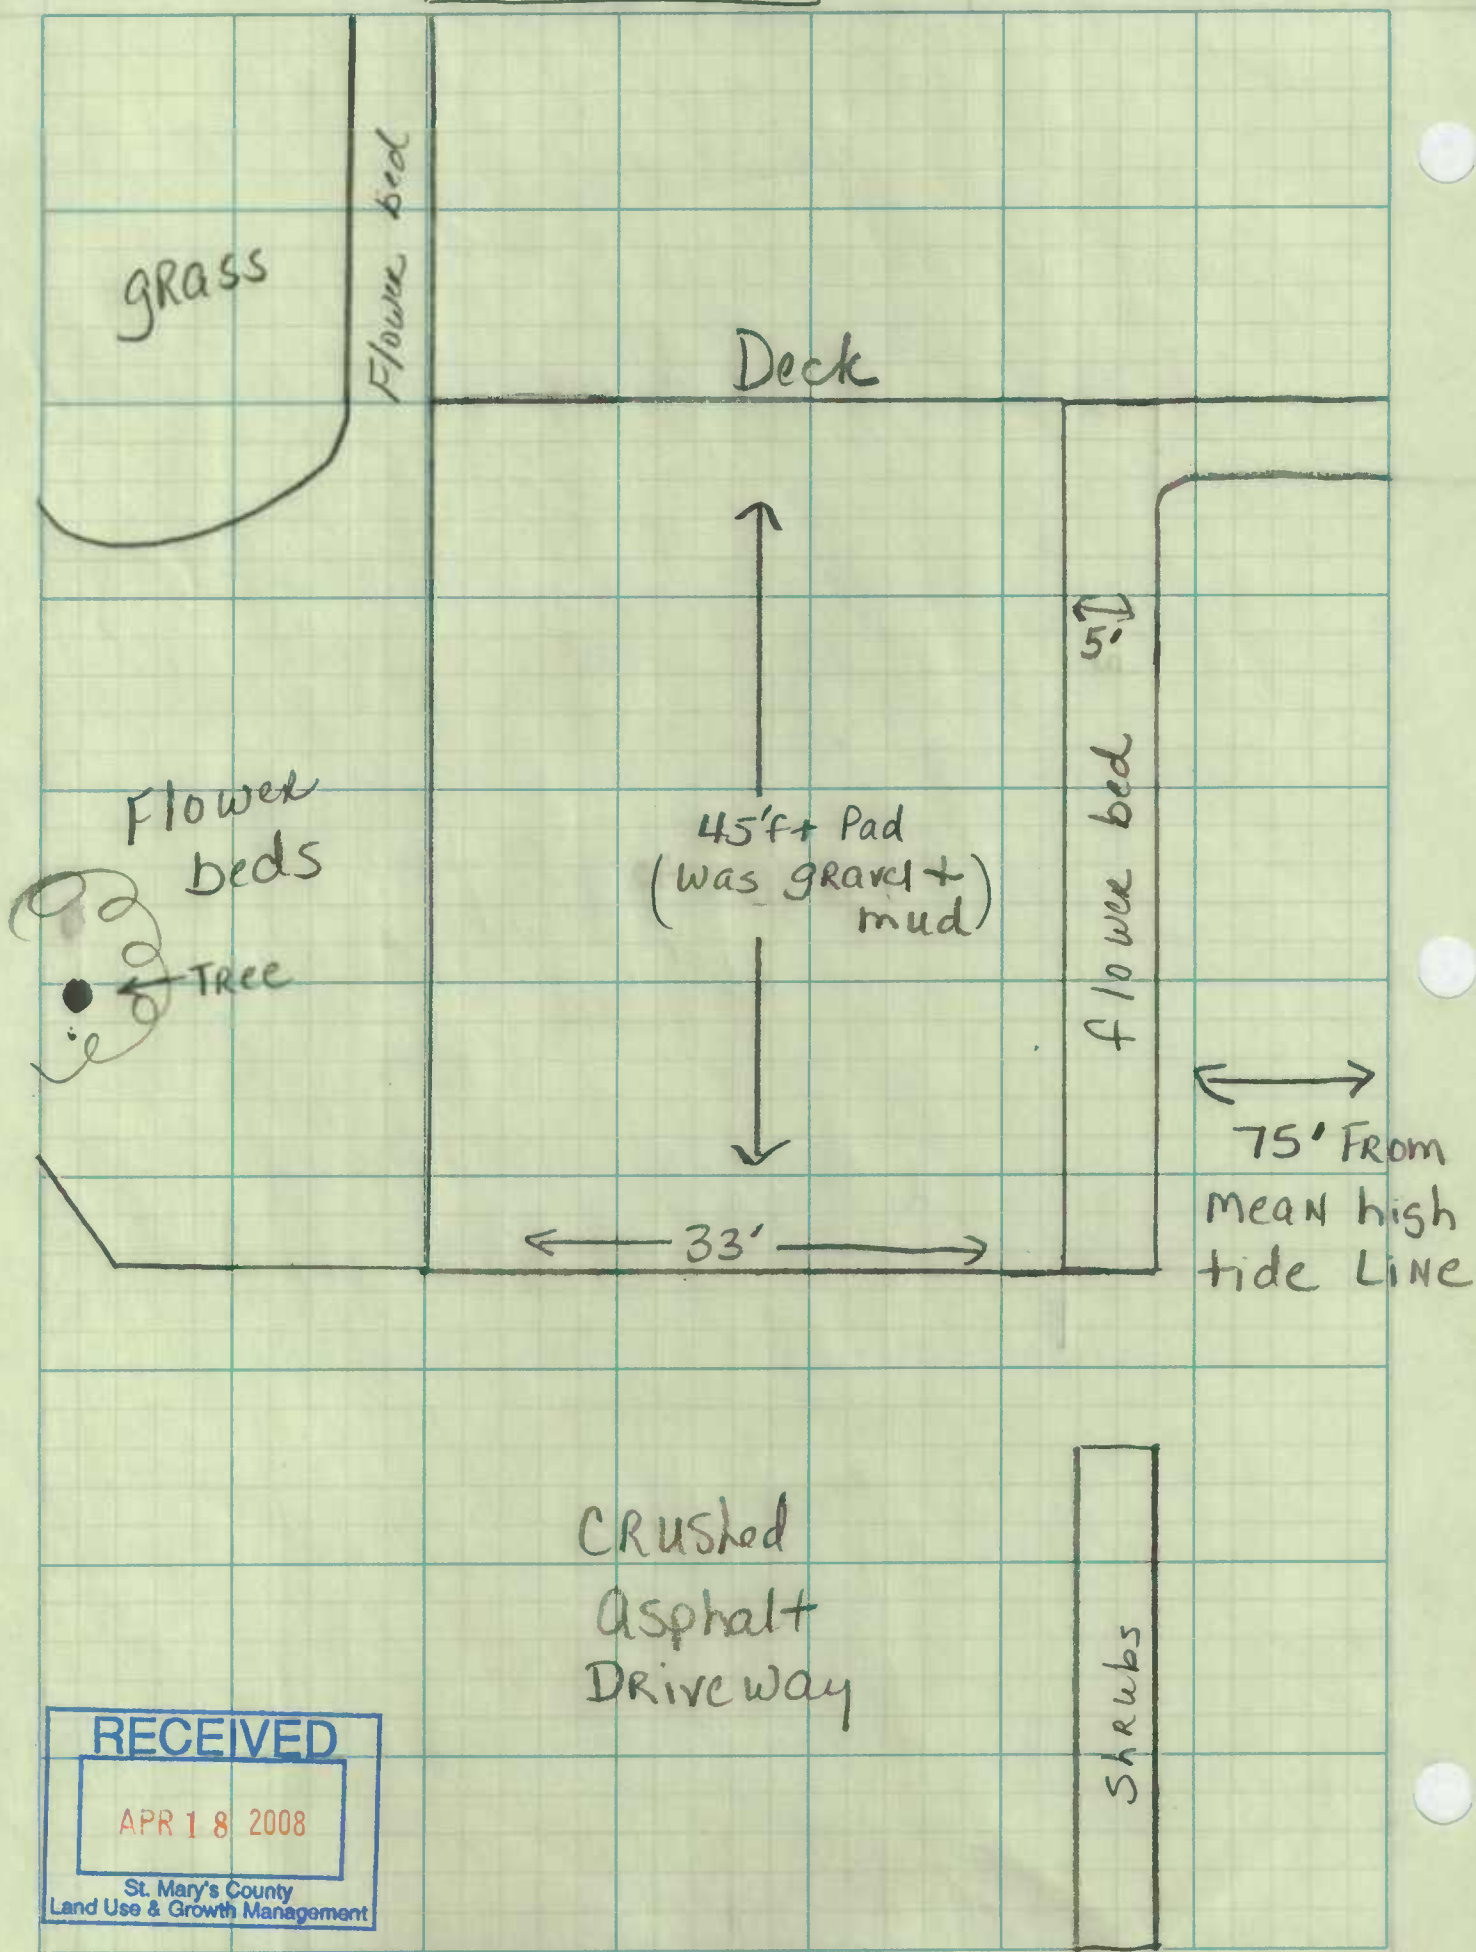 Flower bed
gRass
Deck
5'
Flower
beds
45'ft Pad
(was gRavel +
mud)
flower bed
TRee
75' FRom
meaN high
tide LiNe
33'
CRUShed
asphalt
DRiveway
ShRubs
RECEIVED
APR 18 2008
St. Mary's County
Land Use & Growth Management